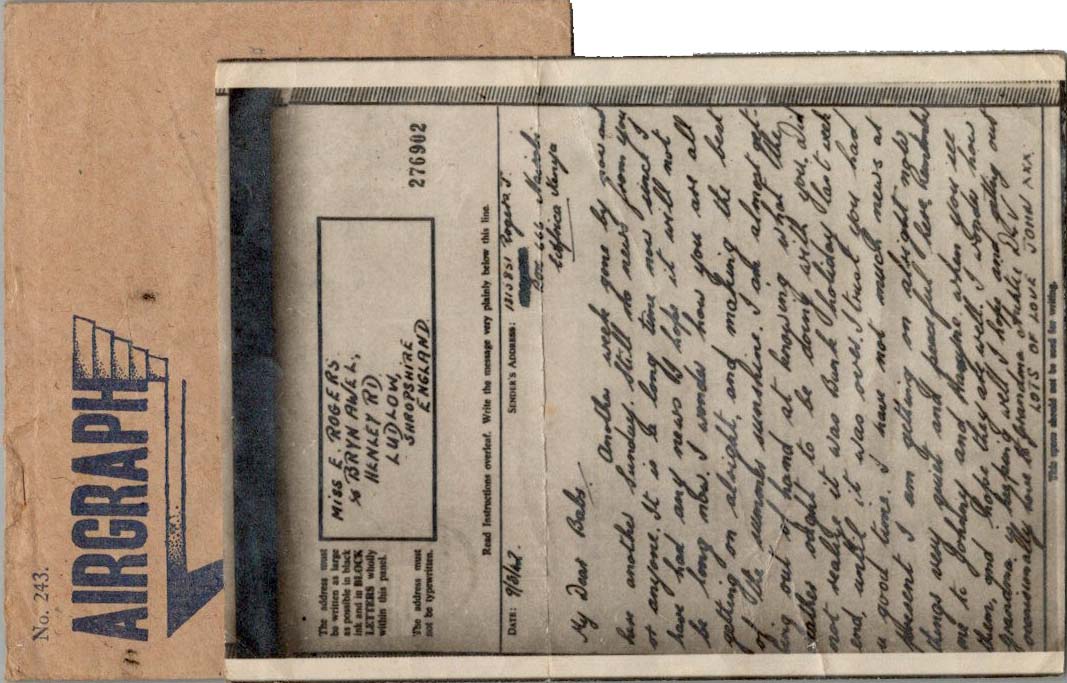 No. 243.
AIRGRAPH
The address must
be written as large
as possible in black
ink and in BLOCK
LETTERS wholly
within this panel.
The address must
not be typewritten.
MISS E. ROGERS
% BRYN AWEL,
HENLEY RD
LUDLOW,
SHROPSHIRE
ENGLAND
276902
Read Instructions overleaf. Write the message very plainly below this line.
DATE: 9/8/42.
SENDER'S ADDRESS: 1315851 Rogers J.
Box 666 Nairobi
Africa Kenya
My Dear Babs
Another week gone by now and
here another Sunday. Still no news from you
or anyone. It is a long time now since I
have had any news hope it will not
be long now. I wonder how you are all
getting on alright, and making the best
of the summers sunshine. I am almost get-
ting out of hand at knowing what they
rather ought to be doing with you. Did
not realise it was Bank Holiday last week
end until it was over. I trust you had
a good time. I have not much news at
present I am getting on alright mode
things very quiet and peaceful here. Remember
me to Johnny and when you see
them, and hope they are well. I wonder how
grandma is keeping well I hope and getting out
occasionally love to grandma Auntie
LOTS OF LOVE JOHN XXX
This space should not be used for writing.